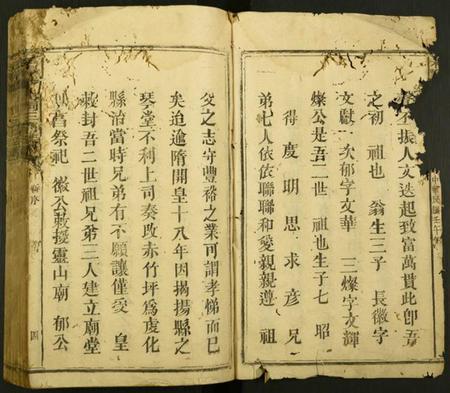 不振人文迭起致富萬貫此卽吾
之初 祖也 翁生三子 長徽字
文尉 次郁字文華 三燦字文輝
燦公是吾二世 祖也生子七 昭
得 度 明 思 求 彦 兄
弟七人依依聯聯和愛親親遵 祖
父之志守豐裕之業可謂孝悌而已
矣迨逾隋開皇十八年因揭揚縣之
琴堂不利上司奏改赤竹坪爲虔化
縣治當時兄弟有不願讓僅受 皇
敕封吾二世祖兄弟三人建立廟堂
祭祀 徽公敕授靈山廟 郁公
序
四